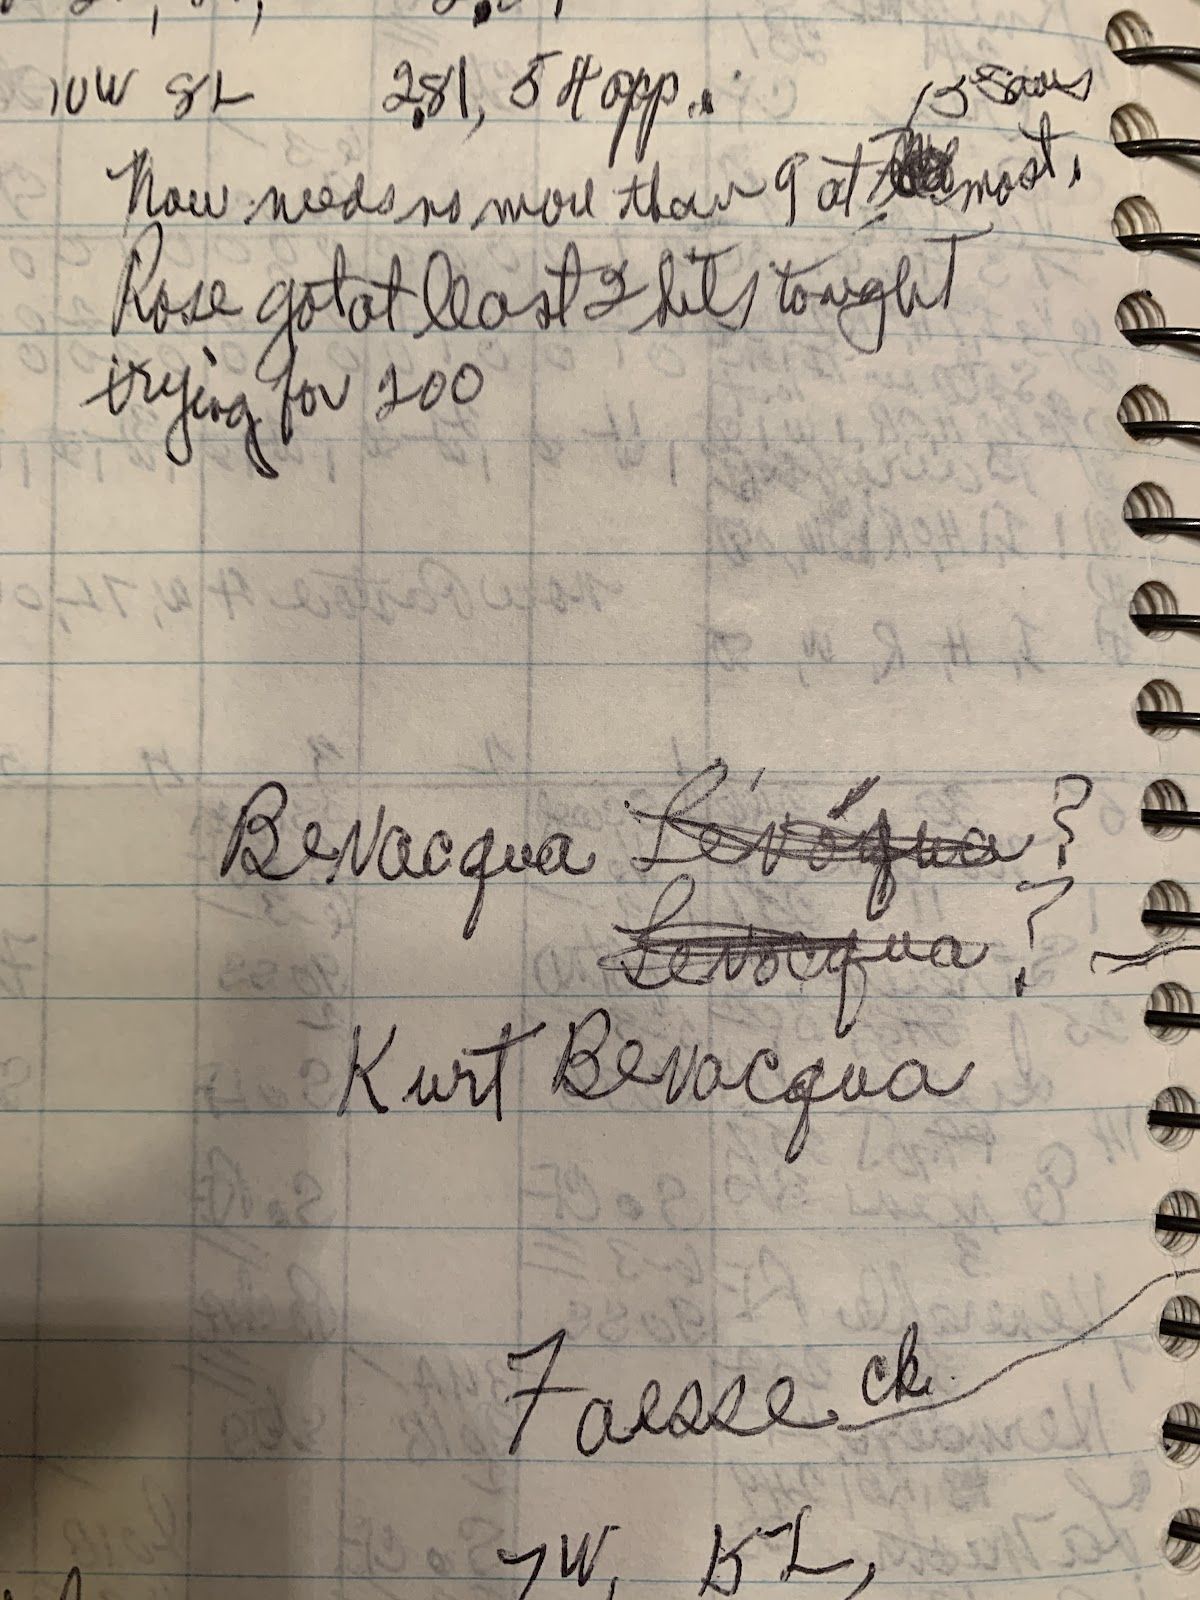 10W 8L 2.81, 54 app. 15 Saves
Now needs no more than 9 at most.
Rose got at least 2 hits tonight
trying for 200
Bevacqua Levoqua ?
Levocqua ?
Kurt Bevacqua
Faesse ck.
7W, 15L,